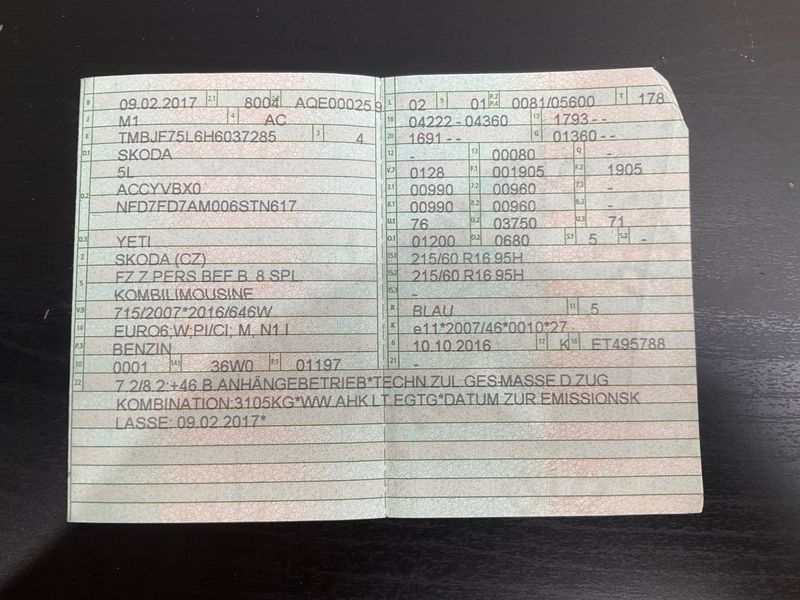 B 09.02.2017 2.1 8004 2.2 AQE00025 9
J M1 4 AC
E TMBJF75L6H6037285 3 4
D.1 SKODA
5L
D.2 ACCYVBX0
NFD7FD7AM006STN617
D.3 YETI
2 SKODA (CZ)
5 FZ.Z.PERS.BEF.B. 8 SPL.
KOMBILIMOUSINE
V.9 715/2007*2016/646W
14 EURO6;W;PI/CI; M, N1 I
P.3 BENZIN
10 0001 14.1 36W0 P.1 01197
L 02 9 01 P.2 P.4 0081/05600 T 178
18 04222 - 04360 19 1793 - -
20 1691 - - G 01360 - -
12 - 13 00080 Q -
V.7 0128 F.1 001905 F.2 1905
7.1 00990 7.2 00960 7.3 -
8.1 00990 8.2 00960 8.3 -
U.1 76 U.2 03750 U.3 71
O.1 01200 O.2 0680 S.1 5 S.2 -
15.1 215/60 R16 95H
15.2 215/60 R16 95H
15.3 -
R BLAU 11 5
K e11*2007/46*0010*27
6 10.10.2016 17 K 16 ET495788
21 -
22 7.2/8.2:+46 B.ANHÄNGEBETRIEB*TECHN.ZUL.GES-MASSE D.ZUG
KOMBINATION:3105KG*WW.AHK LT.EGTG*DATUM ZUR EMISSIONSK
LASSE: 09.02.2017*